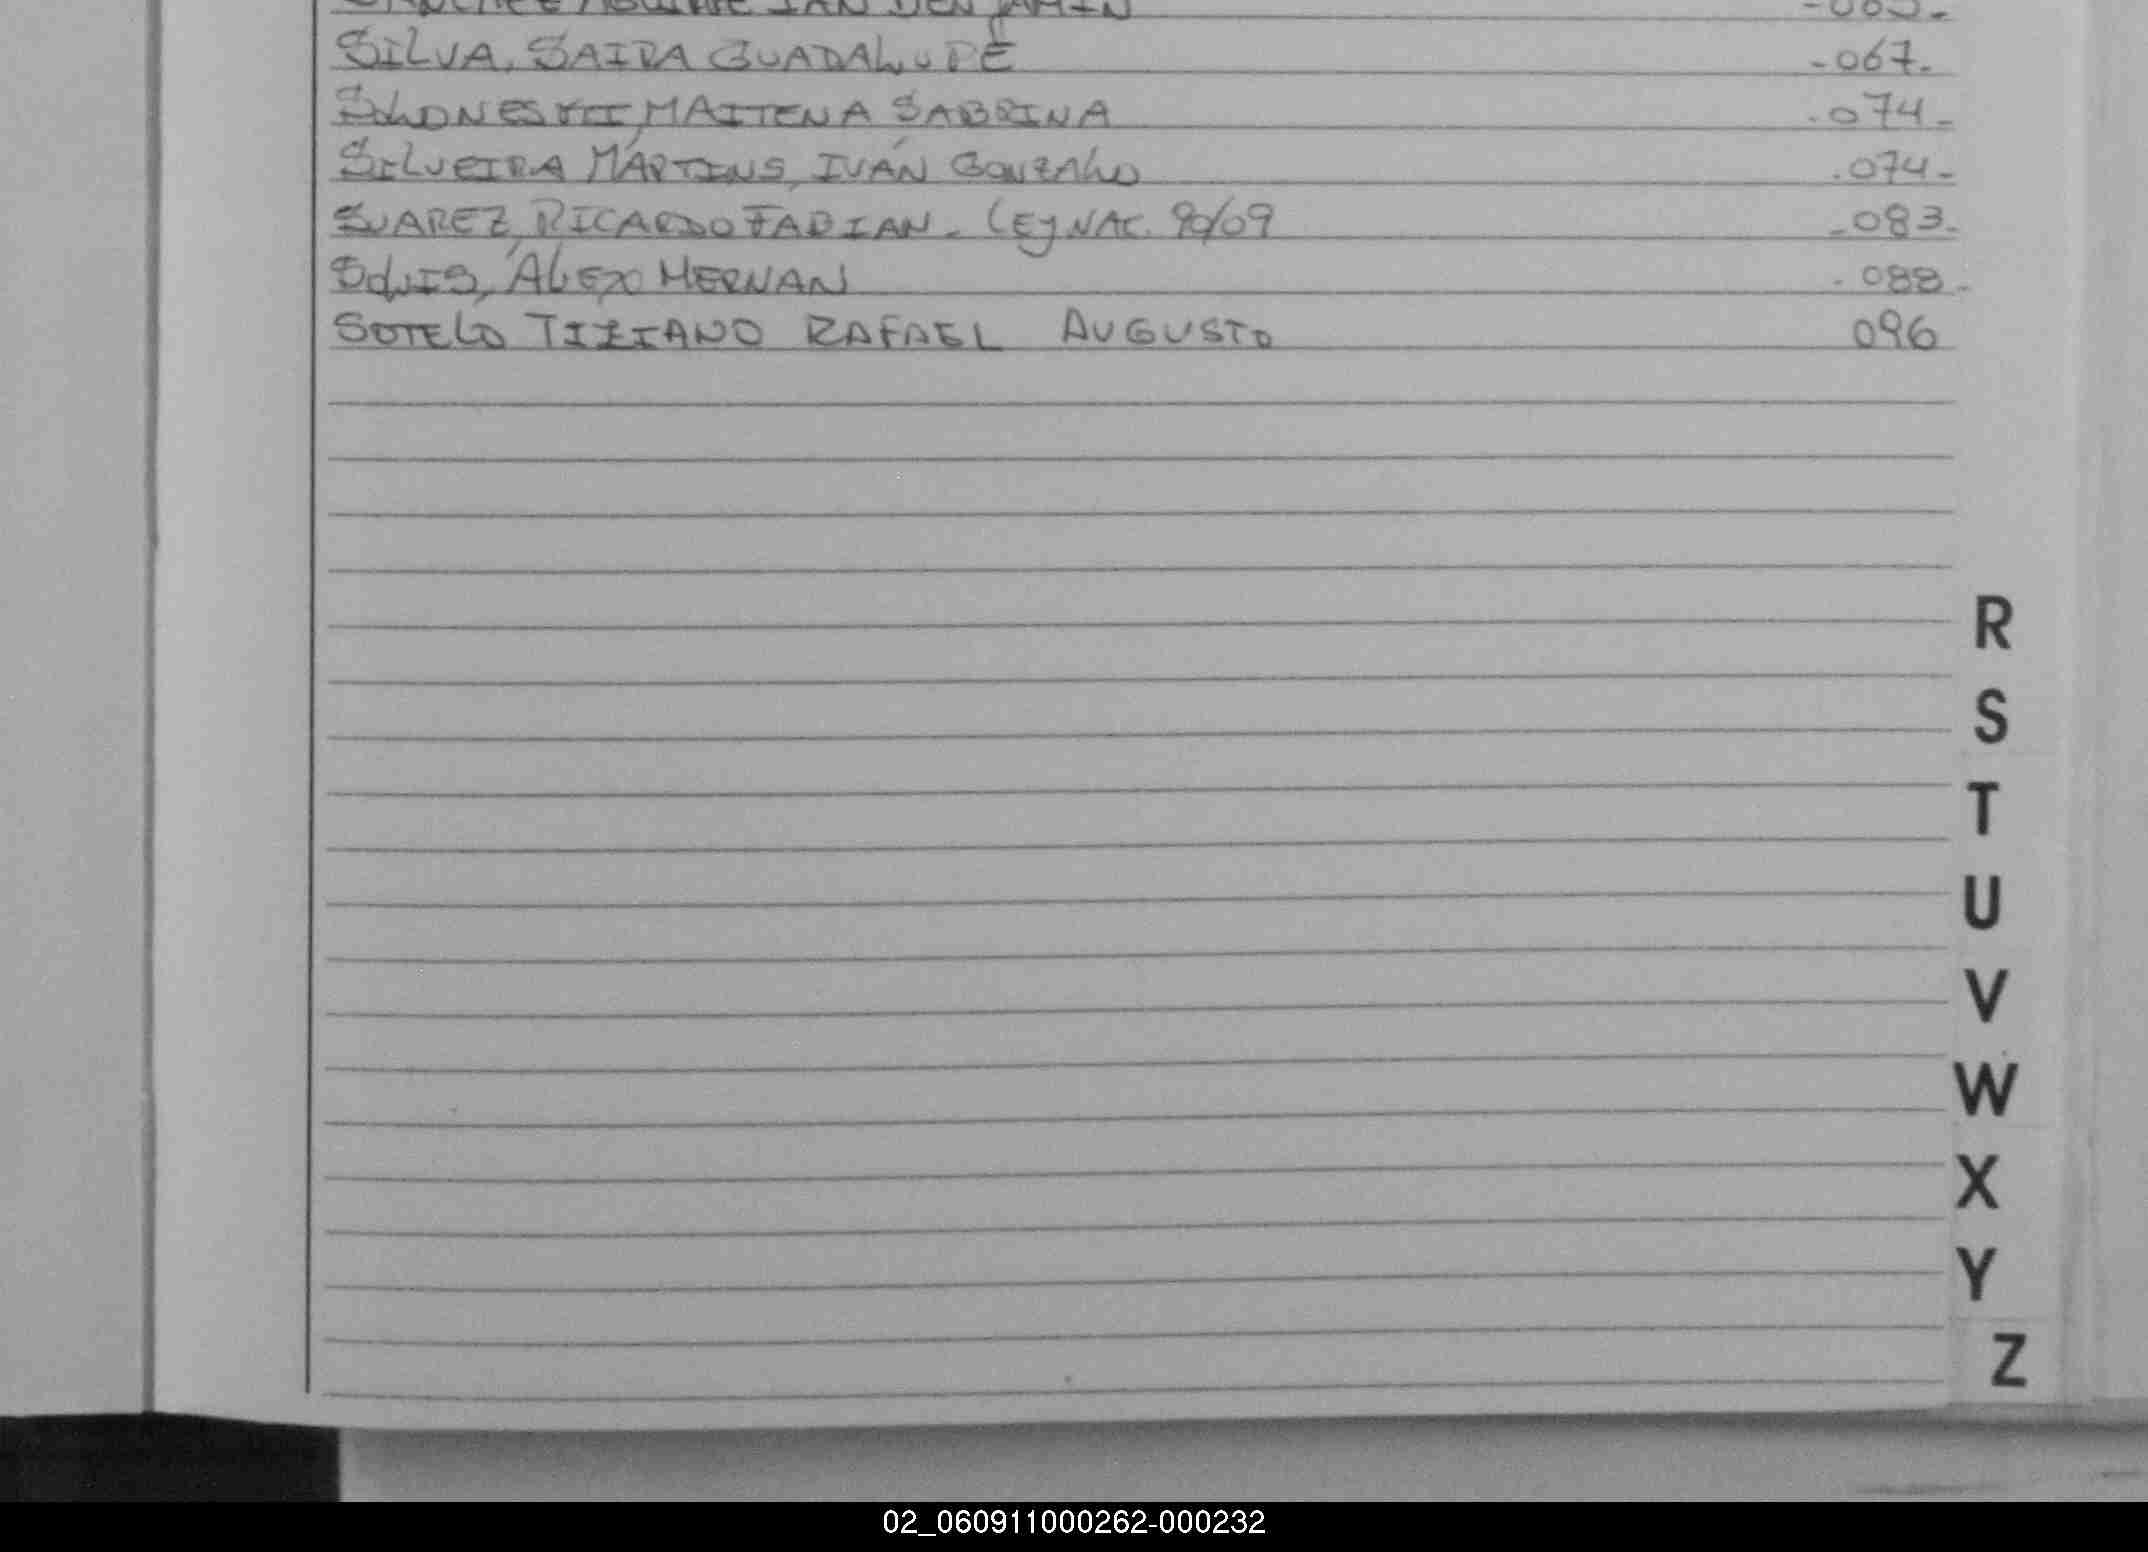 SANCHEZ AGUIRRE IAN BENJAMIN -065-
SILVA, SAIRA GUADALUPE -067-
MAITENA SABRINA .074-
SILVEIRA MARTINS, IVÁN GONZALO .074-
SUAREZ, RICARDO FABIAN - LEY NAC. 90/09 -083-
SOLIS, ALEX HERNAN -088-
SOTELO TIZIANO RAFAEL AUGUSTO 096
R
S
T
U
V
W
X
Y
Z
02_060911000262-000232